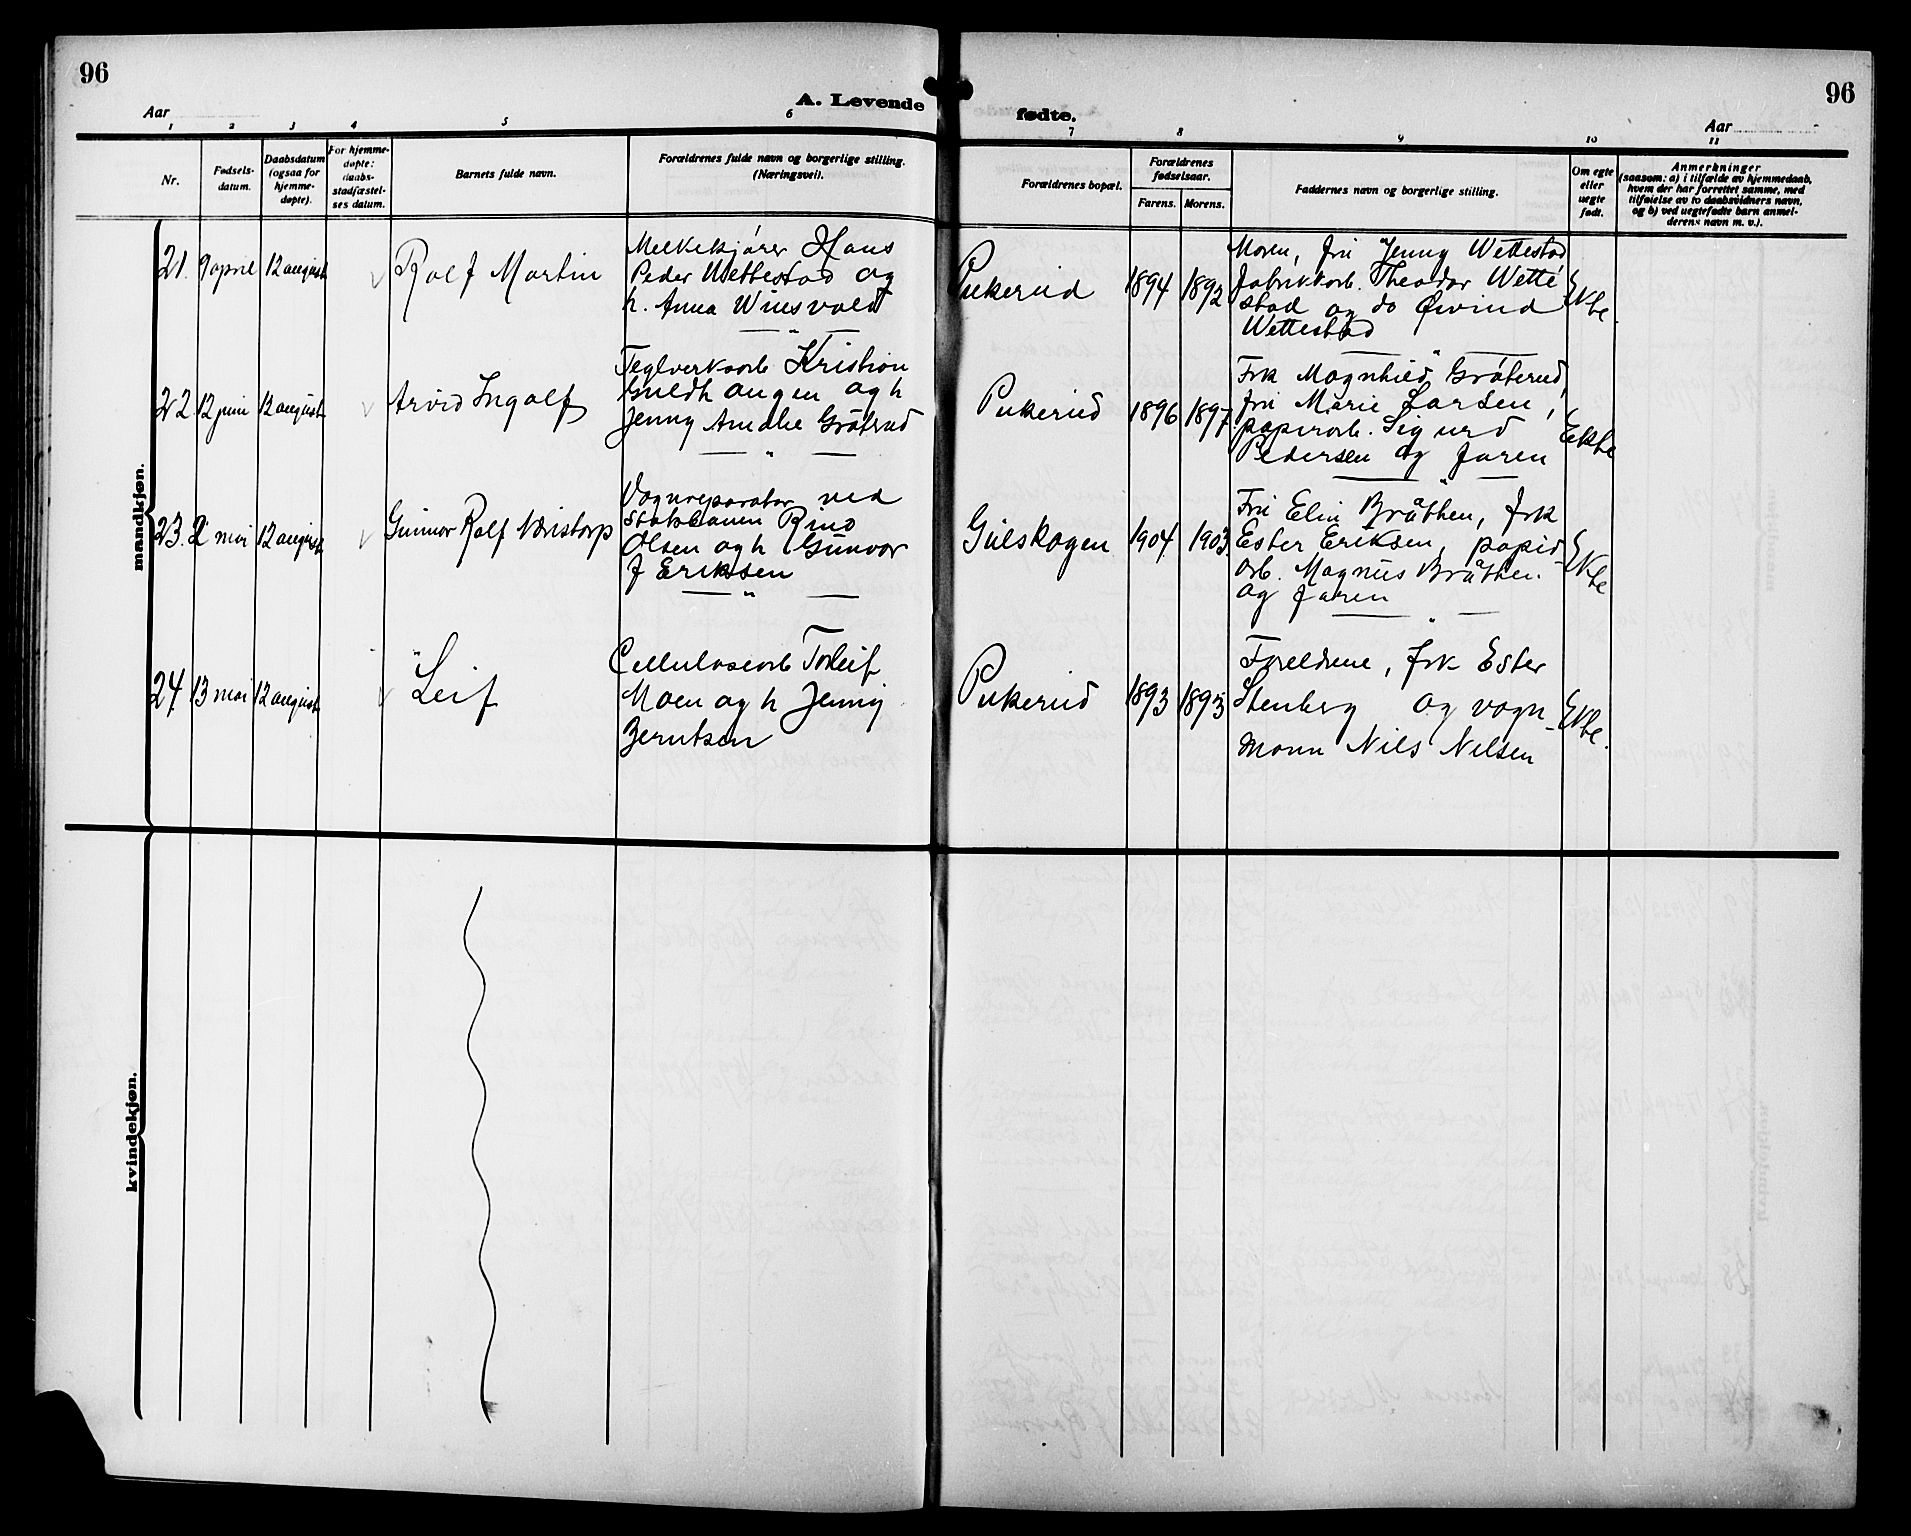 96
96
A. Levende
fødte.
Aar
Aar
1 2 3 4 5 6 7 8 9 10 11
Nr.
Fødsels-
datum.
Daabsdatum
(ogsaa for
hjemme-
døpte).
For hjemme-
døpte:
daabs-
stadfæstel-
ses datum.
Barnets fulde navn.
Forældrenes fulde navn og borgerlige stilling.
(Næringsvei).
Forældrenes bopæl.
Forældrenes
fødselsaar.
Farens. Morens.
Faddernes navn og borgerlige stilling.
Om egte
eller
uegte
født.
Anmerkninger
(saasom: a) i tilfælde av hjemmedaab,
hvem der har forrettet samme, med
tilføielse av to daabsvidners navn,
og b) ved uegtefødte barn anmel-
derens navn m. v.).
mandkjøn.
21. 9 april 12 august
Rolf Martin
Melkekjører Hans
Peder Wettestad og
h. Anna Winsvold
Pukerud
1894 1892
Moren, fru Jenny Wettestad
Fabrikkarb. Theodor Wette
stad og do Øivind
Wettestad
Ekte.
22. 12 juni 12 august
Arvid Ingolf
Teglverksarb Kristian
Guldhaugen og h
Jenny Amalie Gråterud
Pukerud
1896 1897
Frk Magnhild Gråterud,
fru Marie Larsen,
papirarb. Sigurd
Pedersen og faren
Ekte
23. 2 mai 12 august
Gunnar Rolf
Vognreparatør ved
statsbanen Rino
Olsen og h Gunvor
f Eriksen
Gulskogen
1904 1903
Fru Elin Bråthen, frk
Ester Eriksen, papir-
arb. Magnus Bråthen.
og faren
Ekte
24 13 mai 12 august
Leif
Cellulosearb Torleif
Moen og h Jenny
Berntsen
Pukerud
1893 1895
Foreldrene, frk Ester
Stenberg og vogn-
mann Nils Nilsen
Ekte.
kvindekjøn.